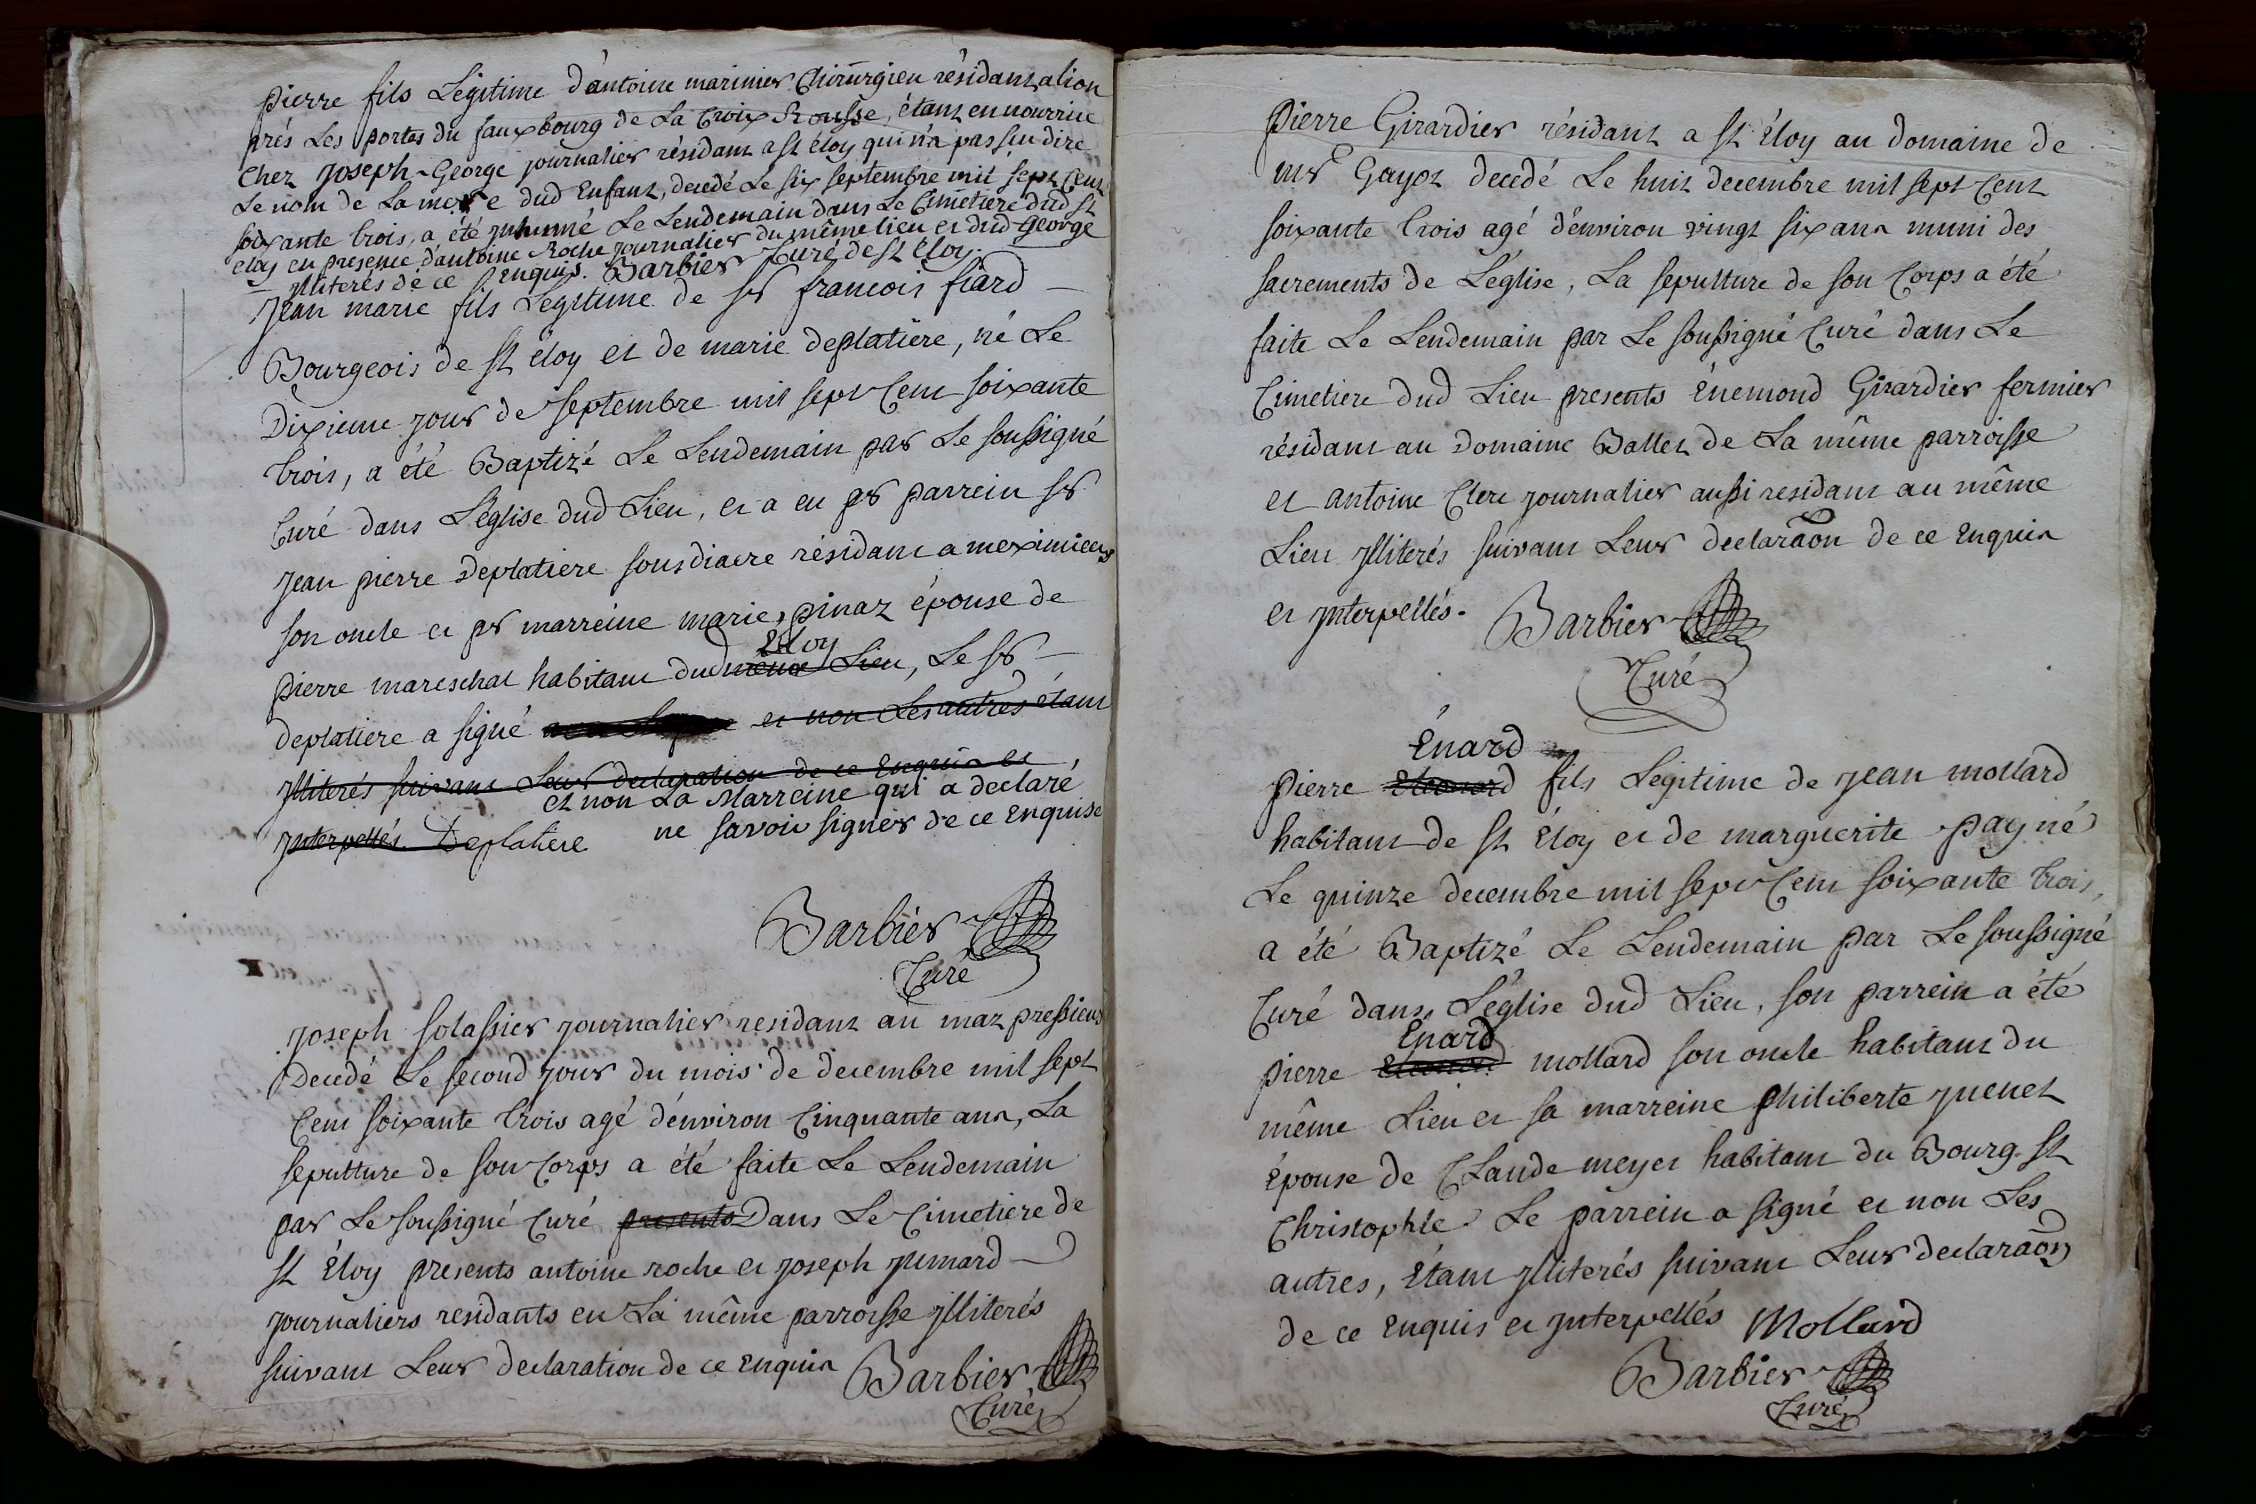 pierre fils Légitime d'antoine marinier Chirurgien résidant a lion
prés Les portes du fauxbourg de La Croix Rousse, étant en nourrice
Chez Joseph George journalier résidant a st éloy qui n'a pas sçu dire
Le nom de La mere dud Enfant, decedé Le six septembre mil sept Cent
soixante trois, a été inhumé Le Lendemain dans Le Cimetiere dud st
eloy en presence d'antoine Roche journalier du même lieu et dud George
jlliterés de ce Enquis. Barbier Curé de st Eloy
Jean marie fils Légitime de sr francois fiard
Bourgeois de st éloy et de marie deplatiere, né Le
Dixieme jour de septembre mil sept Cent soixante
trois, a été Baptizé Le Lendemain par Le soussigné
Curé dans L'église dud Lieu, et a eu pr parrein sr
Jean pierre Deplatiere sousdiacre résidant a meximieux
son oncle et pr marreine marie pinaz épouse de
Eloy
pierre mareschal habitant dud même Lieu, Le sr
deplatiere a signé et non Les autres étant
jlliterés suivant Leur declaration de ce Enquis et
et non La Marreine qui a declaré
jnterpellés. Deplatiere ne savoir signer de ce Enquise
Barbier
Curé
Joseph solassier journalier residant au maz pressieux
Decedé Le second jour du mois de decembre mil sept
Cent soixante trois agé d'énviron Cinquante ans, La
sepulture de son Corps a été faite Le Lendemain
par Le soussigné Curé presents Dans Le Cimetiere de
st Eloy presents antoine roche et joseph jumard
journaliers residants en La même parroisse jlliterés
suivant Leur declaration de ce enquis Barbier
Curé
Pierre Girardier résidant a st Éloy au domaine de
mr Gayot decedé Le huit decembre mil sept Cent
soixante trois agé d'énviron vingt six ans muni des
sacrements de L'église, La sepulture de son Corps a été
faite Le Lendemain par Le soussigné Curé dans Le
Cimetiere dud Lieu presents Énemond Girardier fermier
résidant au Domaine Ballet de La même parroisse
et antoine Clerc journalier aussi residant au même
Lieu jlliterés suivant Leur declaraon de ce enquis
et jnterpellés. Barbier
Curé
Énard
pierre Eleonard fils Legitime de jean mollard
habitant de st Éloy et de marguerite pagy né
Le quinze decembre mil sept Cent soixante trois,
a été Baptizé Le Lendemain par Le soussigné
Curé dans L'église dud Lieu, son parrein a été
Enard
pierre mollard son oncle habitant du
même Lieu et sa marreine philiberte juenet
épouse de Claude meyer habitant du Bourg st
Christophle. Le parrein a signé et non Les
autres, Étant jlliterés suivant Leur declaraon
de ce enquis et jnterpellés Mollard
Barbier
Curé